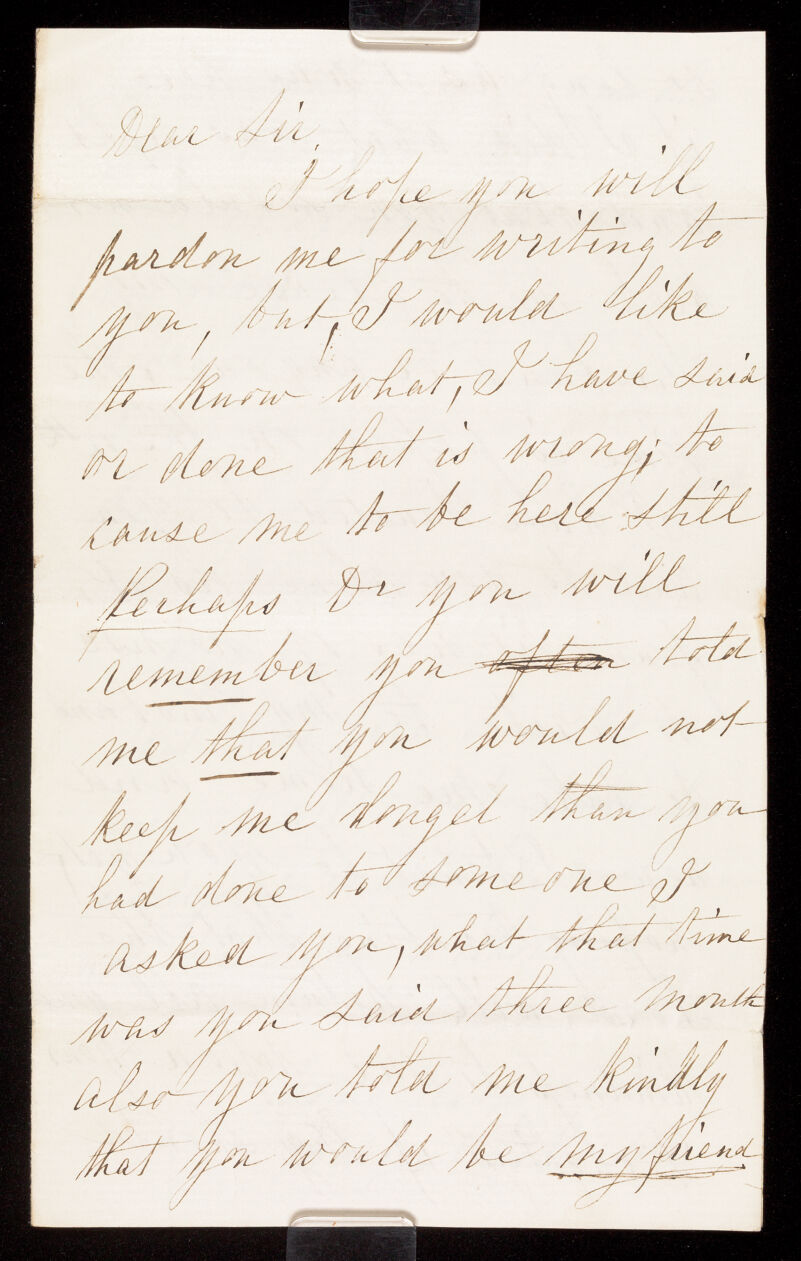 Dear Sir.
I hope you will
pardon me for writing to
you, but, I would like
to know what, I have said
or done that is wrong; to
cause me to be here still
Perhaps Dr you will
remember you often told
me that you would not
keep me longer than you
had done to some one I
asked you, what that time
was you said three month
also you told me kindly
that you would be my friend